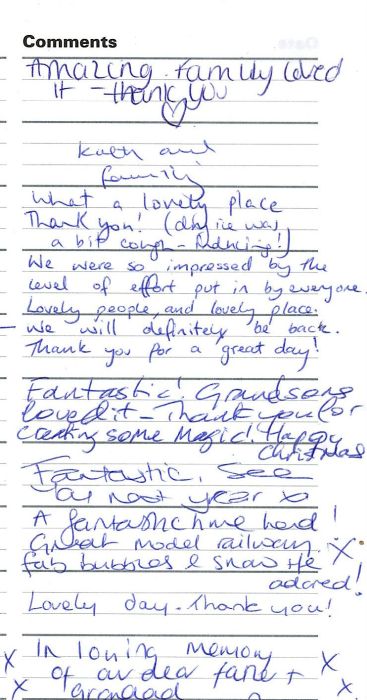 Comments
Amazing. Family loved
it - thank you
Kath and
family
What a lovely place
Thank you! (dry ice was
a bit cough-inducing!)
We were so impressed by the
level of effort put in by everyone.
Lovely people, and lovely place.
- We will definitely be back.
Thank you for a great day!
Fantastic! Grandsons
loved it - Thank you for
creating some magic! Happy
Christmas
Fantastic. See
you next year x
A fantastic time had!
Great model railway. X
fab bubbles & snow He
adored!
Lovely day. Thank you!
X In loving memory X
X of our dear father + X
Grandad